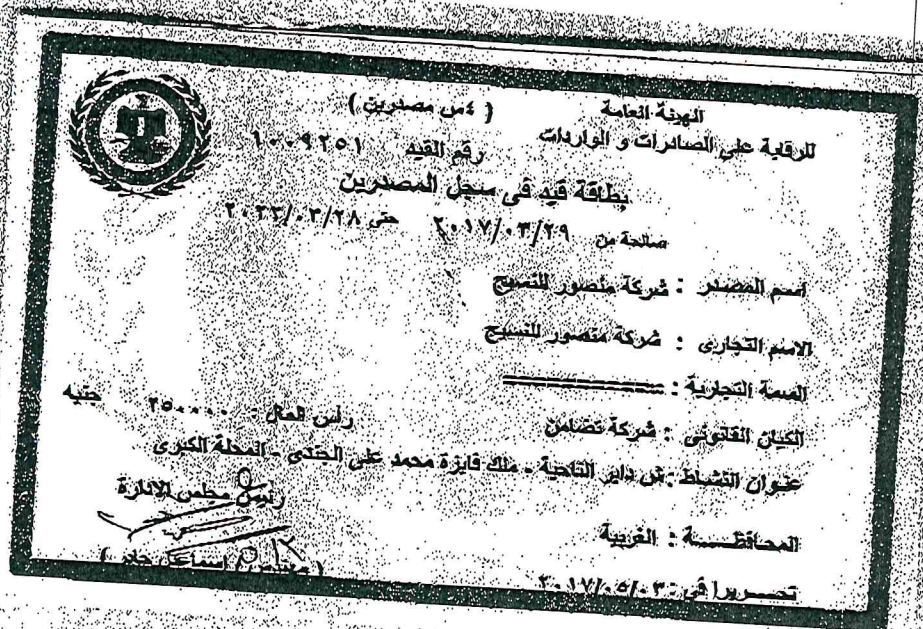 الهيئة العامة
للرقابة على الصادرات و الواردات
( ٤س مصدرين )
رقم القيد ١٠٠٩٢٥١
بطاقة قيد فى سجل المصدرين
صالحة من ٢٠١٧/٠٣/٢٩ حتى ٢٠٢٢/٠٣/٢٨
اسم المصدر : شركة منصور للنسيج
الاسم التجارى : شركة منصور للنسيج
السمة التجارية : ==============
الكيان القانونى : شركة تضامن رأس المال : ٢٥٠٠٠٠ جنيه
عنوان النشاط : ش داير الناحية - ملك فايزة محمد على الجندى - المحلة الكبرى
رئيس مجلس الادارة
المحافظــــة : الغربية
اسماعيل
تحـــريرا فى : ٢٠١٧/٠٥/٠٣